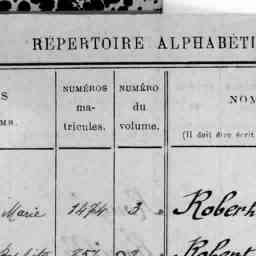 RÉPERTOIRE ALPHABÉTI
S
MS.
NUMÉROS
ma-
tricules.
NUMÉRO
du
volume.
NOM
(Il doit être écrit
Marie 1474 3 " Robert